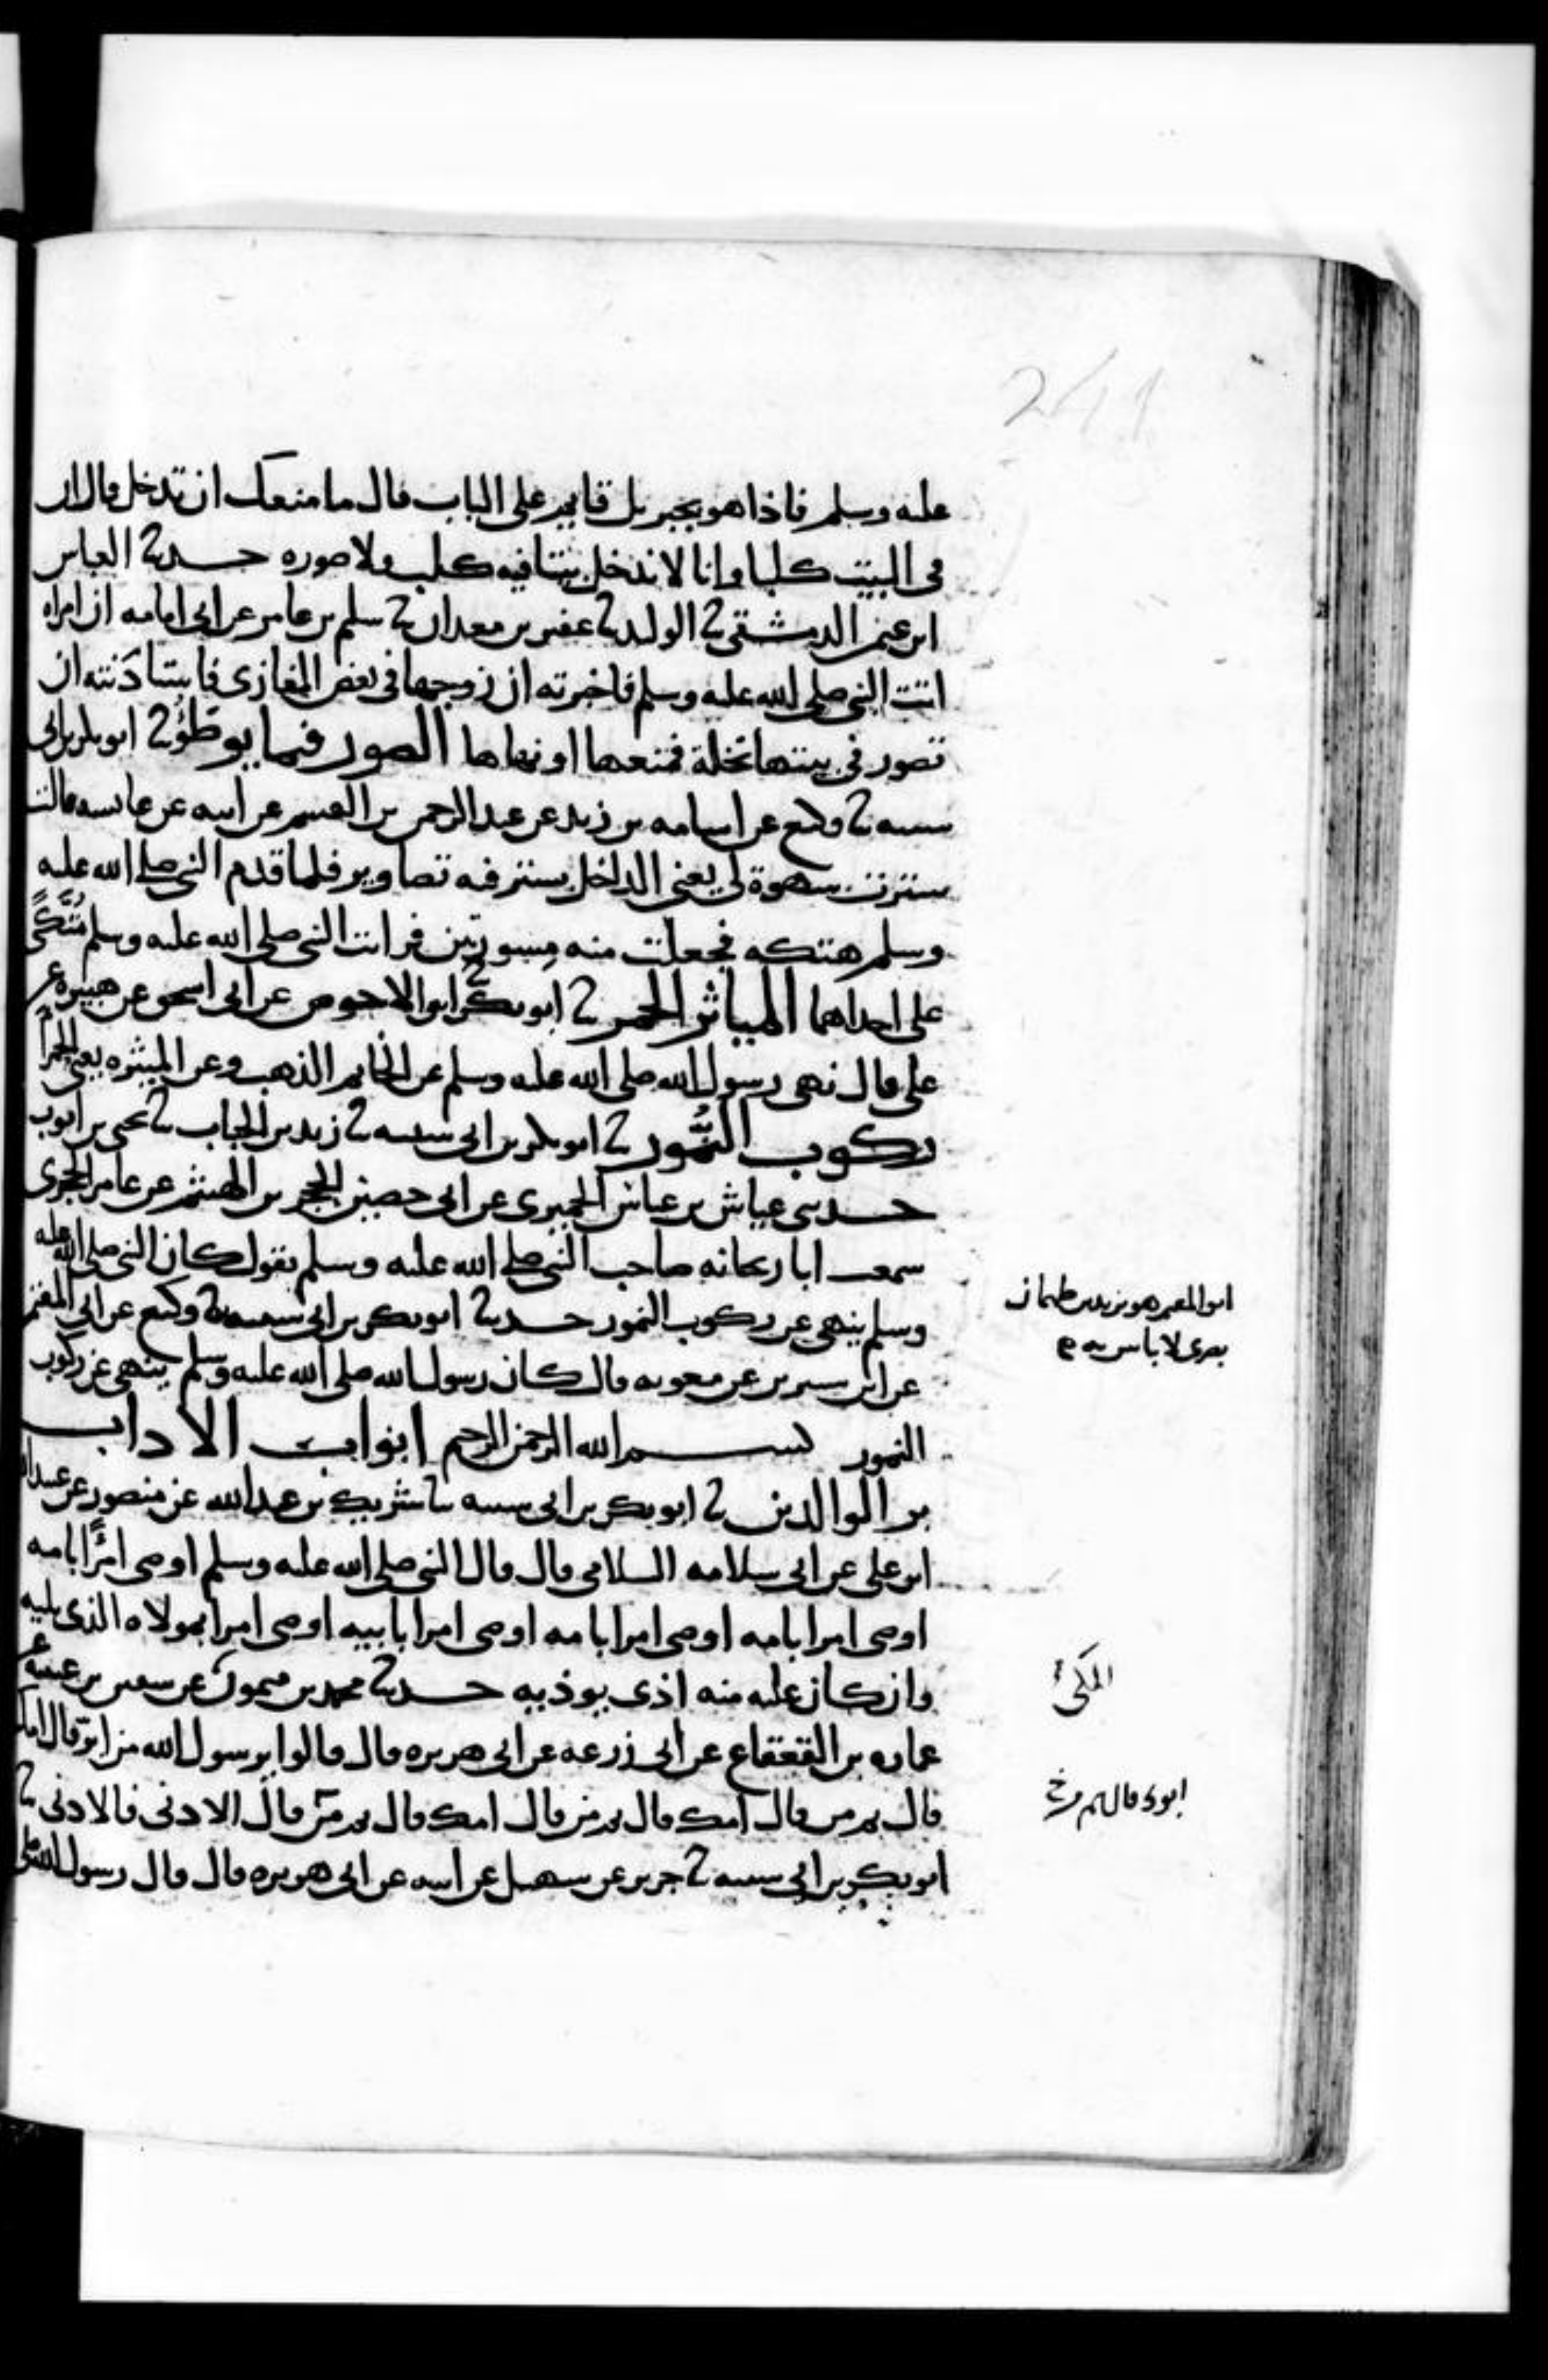 عليه وسلم فاذا هو بجبريل قايم على الباب قال ما منعك ان تدخل قال ان
في البيت كلبا وانا لا ندخل بيتا فيه كلب ولا صوره حدثنا العباس
ابن عثمن الدمشقي ثنا الوليد ثنا عفير بن معدان ثنا سليم بن عامر عن ابي امامه ان امراه
اتت النبي صلى الله عليه وسلم فاخبرته ان زوجها في بعض المغازي فاستاذنته ان
تصور في بيتها نخلة فمنعها او نهاها الصور فيما يوطؤ ثنا ابو بكر بن ابي
شيبه ثنا وكيع عن اسامه بن زيد عن عبد الرحمن بن القسم عن ابيه عن عايشه قالت
سترت سهوة لي يعني الداخل بستر فيه تصاوير فلما قدم النبي صلى الله عليه
وسلم هتكه فجعلت منه مسورتين فرايت النبي صلى الله عليه وسلم متكئا
على احداهما المياثر الحمر ثنا ابو بكر ثنا ابو الاحوص عن ابي اسحق عن هبيرة عن
علي قال نهى رسول الله صلى الله عليه وسلم عن الخاتم الذهب وعن الميثره يعني الحمرا
ركوب النمور ثنا ابو بكر بن ابي شيبه ثنا زيد بن الحباب ثنا يحيى بن ايوب
حدثني عياش بن عباس الحميري عن ابي حصين الحجري بن الهيثم عن عامر الحجري
سمعت ابا ريحانه صاحب النبي صلى الله عليه وسلم يقول كان النبي صلى الله عليه
وسلم ينهى عن ركوب النمور حدثنا ابو بكر بن ابي شيبه ثنا وكيع عن ابي المعتمر
عن ابن سيرين عن معويه قال كان رسول الله صلى الله عليه وسلم ينهى عن ركوب
النمور بسم الله الرحمن الرحيم ابواب الاداب
بر الوالدين ثنا ابو بكر بن ابي شيبه ثنا شريك بن عبد الله عن منصور عن عبيد الله
ابن علي عن ابي سلامه السلامي قال قال النبي صلى الله عليه وسلم اوصي امرًا بامه
اوصي امرا بامه اوصي امرا بامه اوصي امرا بابيه اوصي امرا بمولاه الذي يليه
وان كان عليه منه اذى يوذيه حدثنا محمد بن ميمون عن سفين بن عيينه عن
عماره بن القعقاع عن ابي زرعه عن ابي هريره قال قالوا يرسول الله من ابر قال امك
قال ثم من قال امك قال ثم من قال امك قال ثم من قال الادنى فالادنى ثنا
ابو بكر بن ابي شيبه ثنا جرير عن سهيل عن ابيه عن ابي هريره قال قال رسول الله صلى
ابو المعتمر هو يزيد بن طهمان
بصري لا باس به
المكي